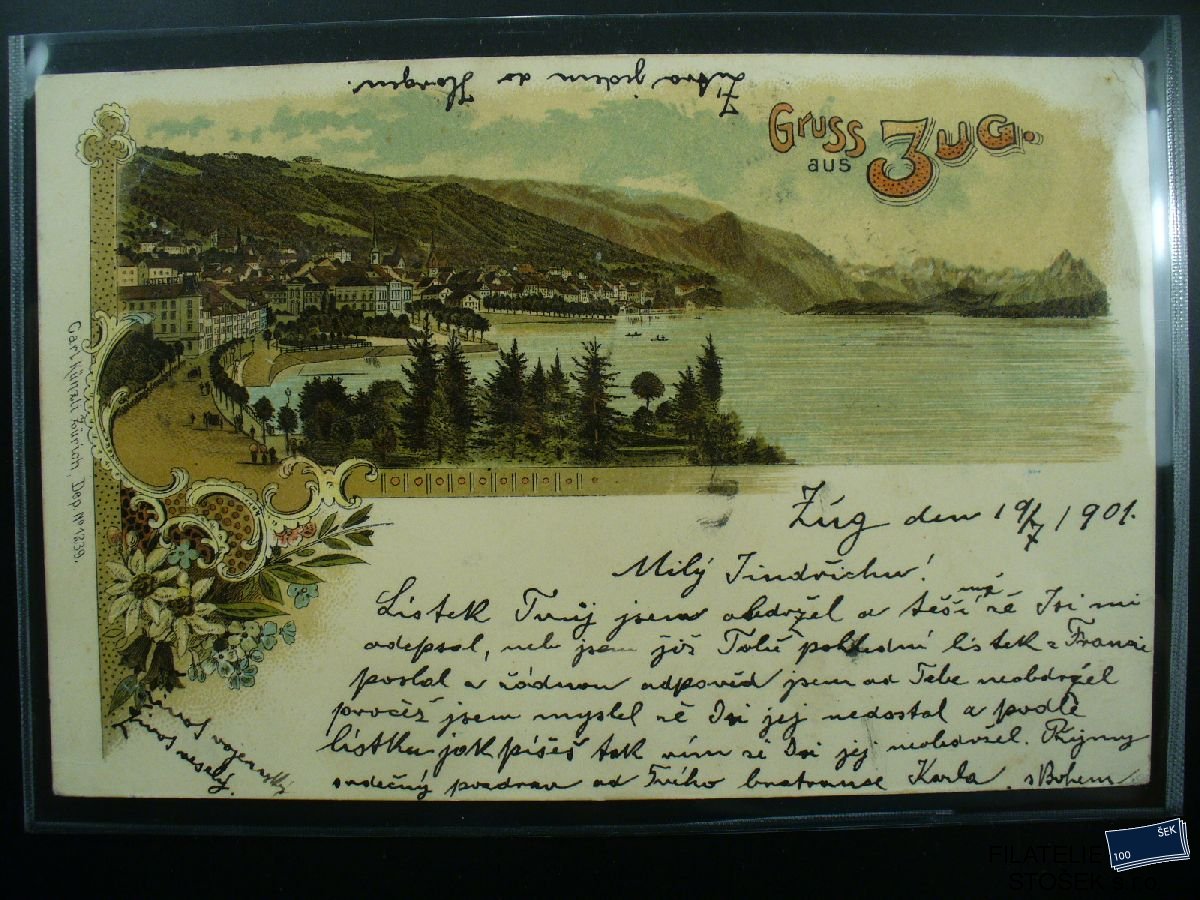 Zítra jedem do Horgen.
Gruss
aus
Zug.
Carl Künzli Zürich, Dep. No 1239.
Zúg den 19/X 1901.
Milý Jindřichu!
Lístek Tvůj jsem obdržel a těší mě že Jsi mi
odepsal, nebo jsem již Tobě pohlední lístek z Francie
poslal a žádnou odpověd jsem od Tebe neobdržel
pročež jsem myslel že Jsi jej nedostal a podle
lístku jak píšeš tak vím že Jsi jej neobdržel. Přijmy
srdečný pozdrav od Tvího bratrance Karla. s Bohem
veselý.
100
ŠEK
FILATELIE
STOŠEK s.r.o.